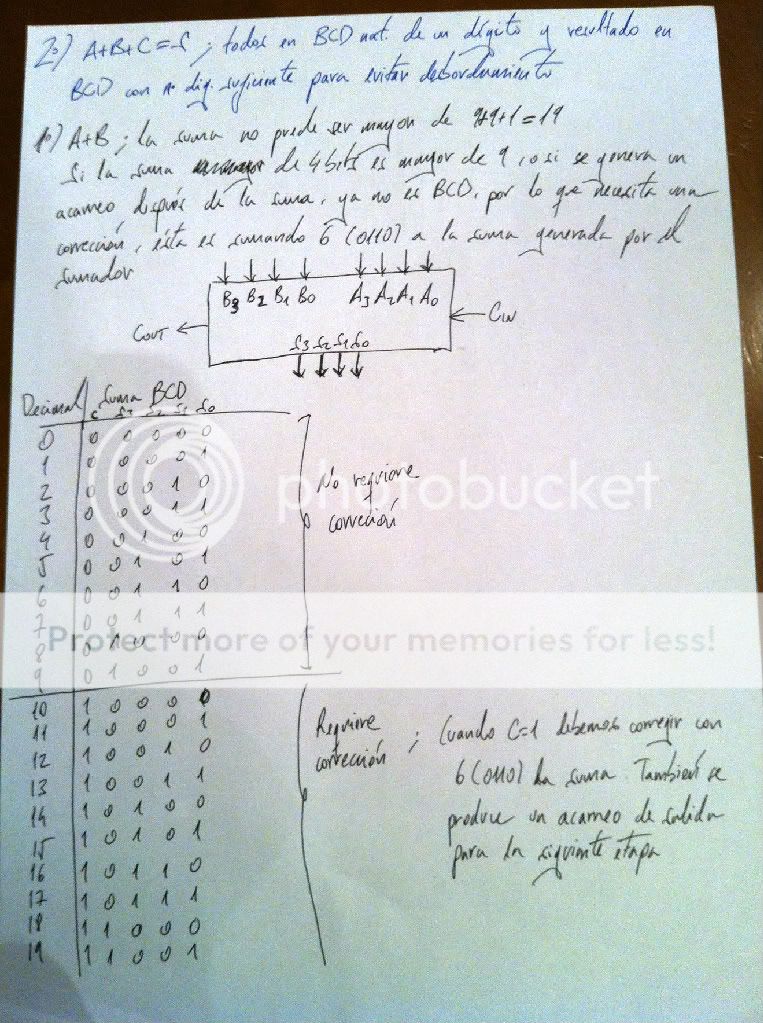 2º) A+B+C=S ; todos en BCD nat. de un dígito y resultado en
BCD con nº dig. suficiente para evitar desbordamiento
1º) A+B ; la suma no puede ser mayor de 9+9+1=19
Si la suma de 4 bits es mayor de 9, o si se genera un
acarreo después de la suma, ya no es BCD, por lo que necesita una
corrección, ésta es sumando 6 (0110) a la suma generada por el
sumador
B3 B2 B1 B0 A3 A2 A1 A0
COUT CIN
S3 S2 S1 S0
Decimal Suma BCD
C S3 S2 S1 S0
0 0 0 0 0 0
1 0 0 0 0 1
2 0 0 0 1 0
3 0 0 0 1 1
4 0 0 1 0 0
5 0 0 1 0 1
6 0 0 1 1 0
7 0 0 1 1 1
8 0 1 0 0 0
9 0 1 0 0 1
No requiere
corrección
10 1 0 0 0 0
11 1 0 0 0 1
12 1 0 0 1 0
13 1 0 0 1 1
14 1 0 1 0 0
15 1 0 1 0 1
16 1 0 1 1 0
17 1 0 1 1 1
18 1 1 0 0 0
19 1 1 0 0 1
Requiere
corrección ;
Cuando C=1 debemos corregir con
6 (0110) la suma. También se
produce un acarreo de salida
para la siguiente etapa
photobucket
Protect more of your memories for less!